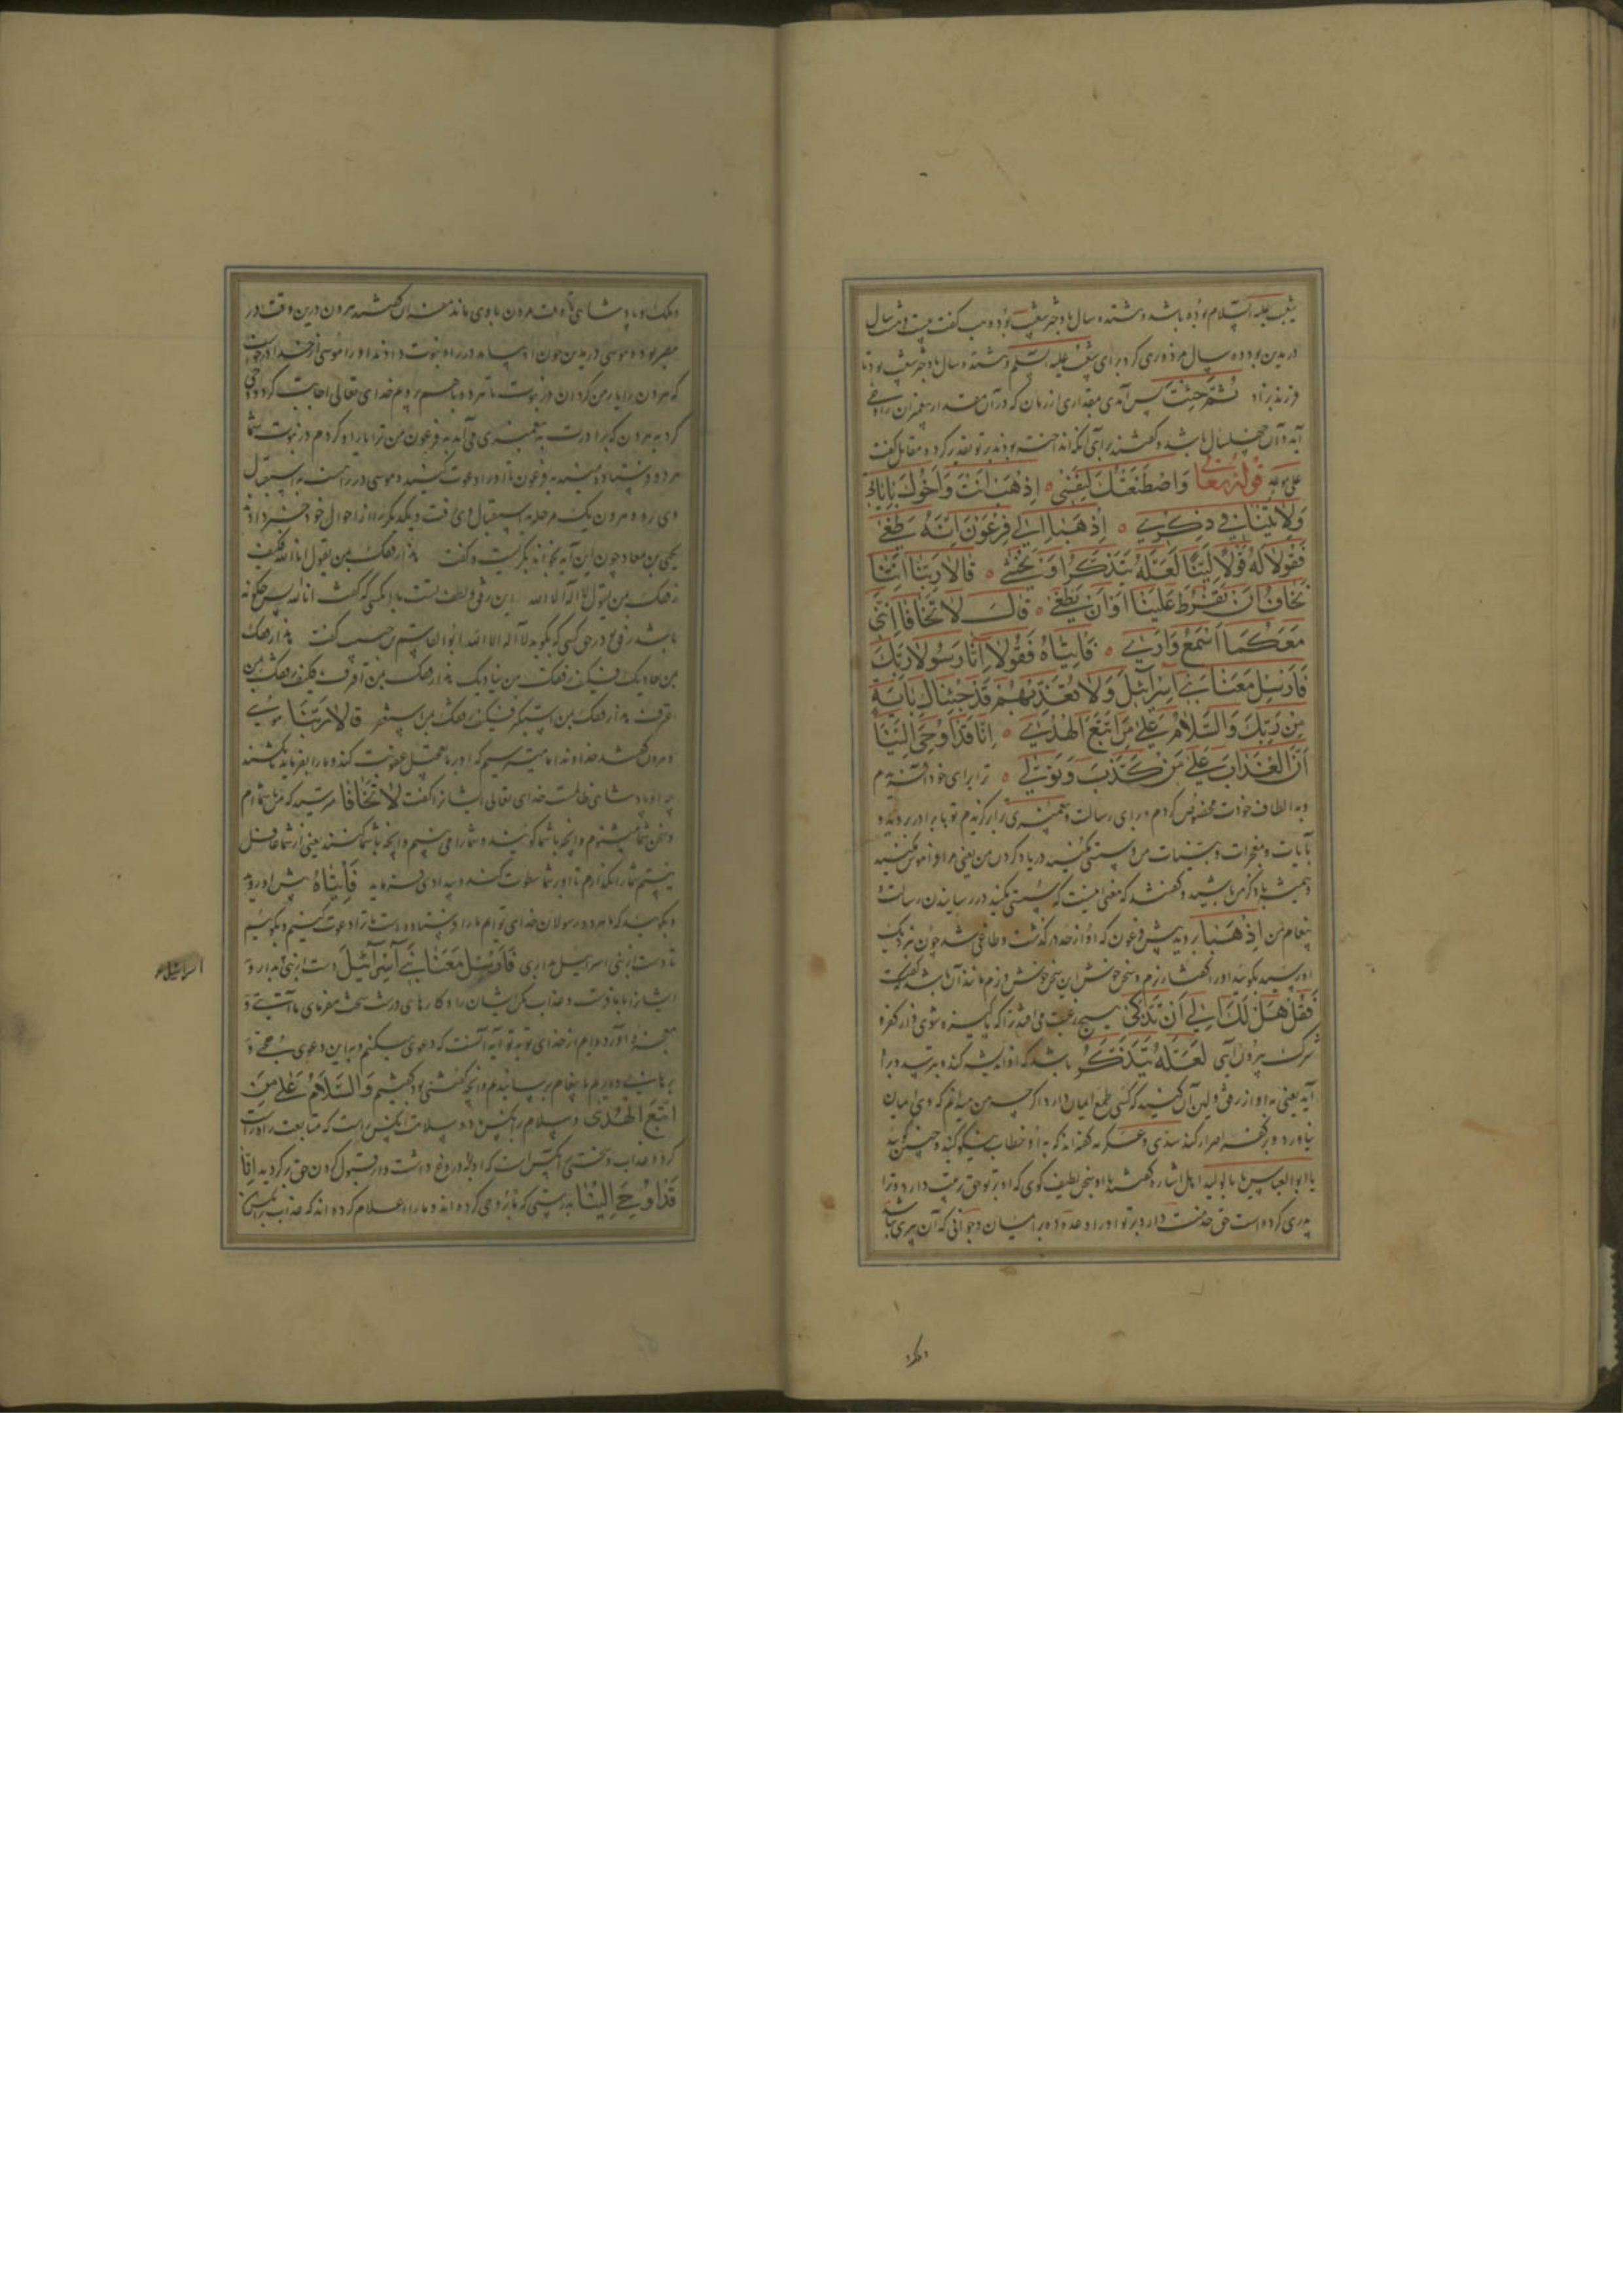 شعیب علیه السلام بوده باشد و هشتده سال با دختر شعیب بوده وهب گفت بیست و هشت سال
در مدین بود ده سال مزدوری کرد برای شعیب علیه السلم و هشتده سال با دختر شعیب بود تا
فرزند بزاد ثُمَّ جِئْتَ پس آمدی مقداری از زمان که در آن مقدار پیغمبران را وحی
آید و آن چهل سال باشد و گفتند برای آنکه اندر تو تقدیر کرده مقاتل گفت
علی موعد قوله تعالی وَاصْطَنَعْتُكَ لِنَفْسِي اِذْهَبْ اَنْتَ وَاَخُوكَ بِاٰيَاتِي
وَلَا تَنِيَا فِي ذِكْرِي اِذْهَبَا اِلٰى فِرْعَوْنَ اِنَّهُ طَغٰى
فَقُولَا لَهُ قَوْلًا لَيِّنًا لَعَلَّهُ يَتَذَكَّرُ اَوْ يَخْشٰى قَالَا رَبَّنَا اِنَّنَا
نَخَافُ اَنْ يَفْرُطَ عَلَيْنَا اَوْ اَنْ يَطْغٰى قَالَ لَا تَخَافَا اِنَّنِي
مَعَكُمَا اَسْمَعُ وَاَرٰى فَأْتِيَاهُ فَقُولَا اِنَّا رَسُولَا رَبِّكَ
فَاَرْسِلْ مَعَنَا بَنِي اِسْرَآئِيلَ وَلَا تُعَذِّبْهُمْ قَدْ جِئْنَاكَ بِاٰيَةٍ
مِنْ رَبِّكَ وَالسَّلَامُ عَلٰى مَنِ اتَّبَعَ الْهُدٰى اِنَّا قَدْ اُوحِيَ اِلَيْنَا
اَنَّ الْعَذَابَ عَلٰى مَنْ كَذَّبَ وَتَوَلّٰى ترا برای خود
و به الطاف خودت مخصوص کردم و برای رسالت و پیغمبری ترا برگزیدم تو با برادر بروید و
بآیات و معجزات و بینات من و سستی مکنید در یاد کردن من یعنی مرا فراموش مکنید
و همیشه با ذکر من باشید و گفتند که معنی اینست که سستی مکنید در رسانیدن رسالت و
پیغام من اِذْهَبَا بروید پیش فرعون که او از حد در گذشت و طاغی شد چون بنزدیک
او رسید بگویید او را گفتار نرم و سخن خوش این سخن خوش و نرم مانند آن باشد که گفت
فَقُلْ هَلْ لَكَ اِلٰى اَنْ تَزَكّٰى هیچ رغبت می افتد ترا که پاکیزه شوی و از کفر و
شرک بیرون آیی لَعَلَّهُ يَتَذَكَّرُ باشد که او اندیشه کند و بترسد و برا
آید یعنی به او از رفق و لین آن کنید که کسی طمع ایمان دارد اگر چه من میدانم که وی ایمان
نیاورد و بر کفر اصرار کند سدی و عکرمه گفته اند که به او خطاب نیکو کنید و چنین گویید
یا ابوالعباس یا ابوالولید اهل اشاره گفتند با او سخن لطیف گوی که او بر تو حق تربیت دارد و ترا
پدری کرده است حق خدمت دارد بر تو او را وعده ده بر ایمان و جوانی که آن پیری نباشد
و ملک و پادشاهی تا وقت مردن با وی ماند مفسران گفتند هرون درین وقت در
مصر بود و موسی در مدین چون در راه نبوت دادند او را موسی از خدا درخواست
که هرون را یار من گردان در نبوت تا هر دو با هم رویم خدای تعالی اجابت کرد و وحی
کرد به هرون که برادرت به پیغمبری می آید به فرعون من ترا یار او کردم در نبوت شما
هر دو را فرستاده به فرعون تا او را دعوت کنید و موسی در راهست به استقبال
وی رو هرون یک مرحله به استقبال وی رفت و یکدیگر را از احوال خود خبر دادند
یحیی بن معاذ چون این آیه بخواند بگریست و گفت هذا رفقك بمن یقول انا الله فکیف
رفقك بمن یقول لا اله الا الله این رفق و لطف تست با آنکسی که گفت انا الله پس چگونه
باشد رفق تو در حق کسی که بگوید لا اله الا الله ابوالقاسم بن حبیب گفت هذا رفقك
بمن عادیك فکیف رفقك بمن ینادیك هذا رفقك بمن اقترف فکیف رفقك بمن
اعترف هذا رفقك بمن استکبر فکیف رفقك بمن استغفر قَالَا رَبَّنَا موسی
و هرون گفتند خداوندا ما میترسیم که او بر ما تعجیل عقوبت کند و ما را بفرماید بکشند
چه او پادشاهی ظالمست خدای تعالی ایشانرا گفت لَا تَخَافَا مترسید که من با شماام
و سخن شما میشنوم و آنچه با شما گویند و شما را می بینم و آنچه با شما کنند یعنی از شما غافل
نیستم شما را نگذارم تا او بر شما سطوت کند و بیدادی فرماید فَأْتِيَاهُ پیش او روید
و بگویید که ما هر دو رسولان خدای توایم ما را فرستاده است تا ترا دعوت کنیم و بگوییم
تا دست از بنی اسرائیل بداری فَاَرْسِلْ مَعَنَا بَنِي اِسْرَآئِيلَ دست از بنی بدار و
ایشانرا با ما فرست و عذاب مکن ایشان را و کارهای درشت سخت مفرمای ما آیتی و
معجزه آورده ایم از خدای تو به تو آیه آنست که دعوی میکنیم و به این دعوی حجتی و
برهانی داریم ما پیغام برسانیدیم و آنچه گفتنی بود گفتیم وَالسَّلَامُ عَلٰى مَنِ
اتَّبَعَ الْهُدٰى و سلام بر آنکس و سلامت آنکس راست که متابعت راه راست
کرد و عذاب و سختی آنکس راست که او بدروغ داشت و از قبول کردن حق برگردید اِنَّا
قَدْ اُوحِيَ اِلَيْنَا به درستی که بما وحی کرده اند و ما را اعلام کرده اند که عذاب بر آنکس
اسرائیل